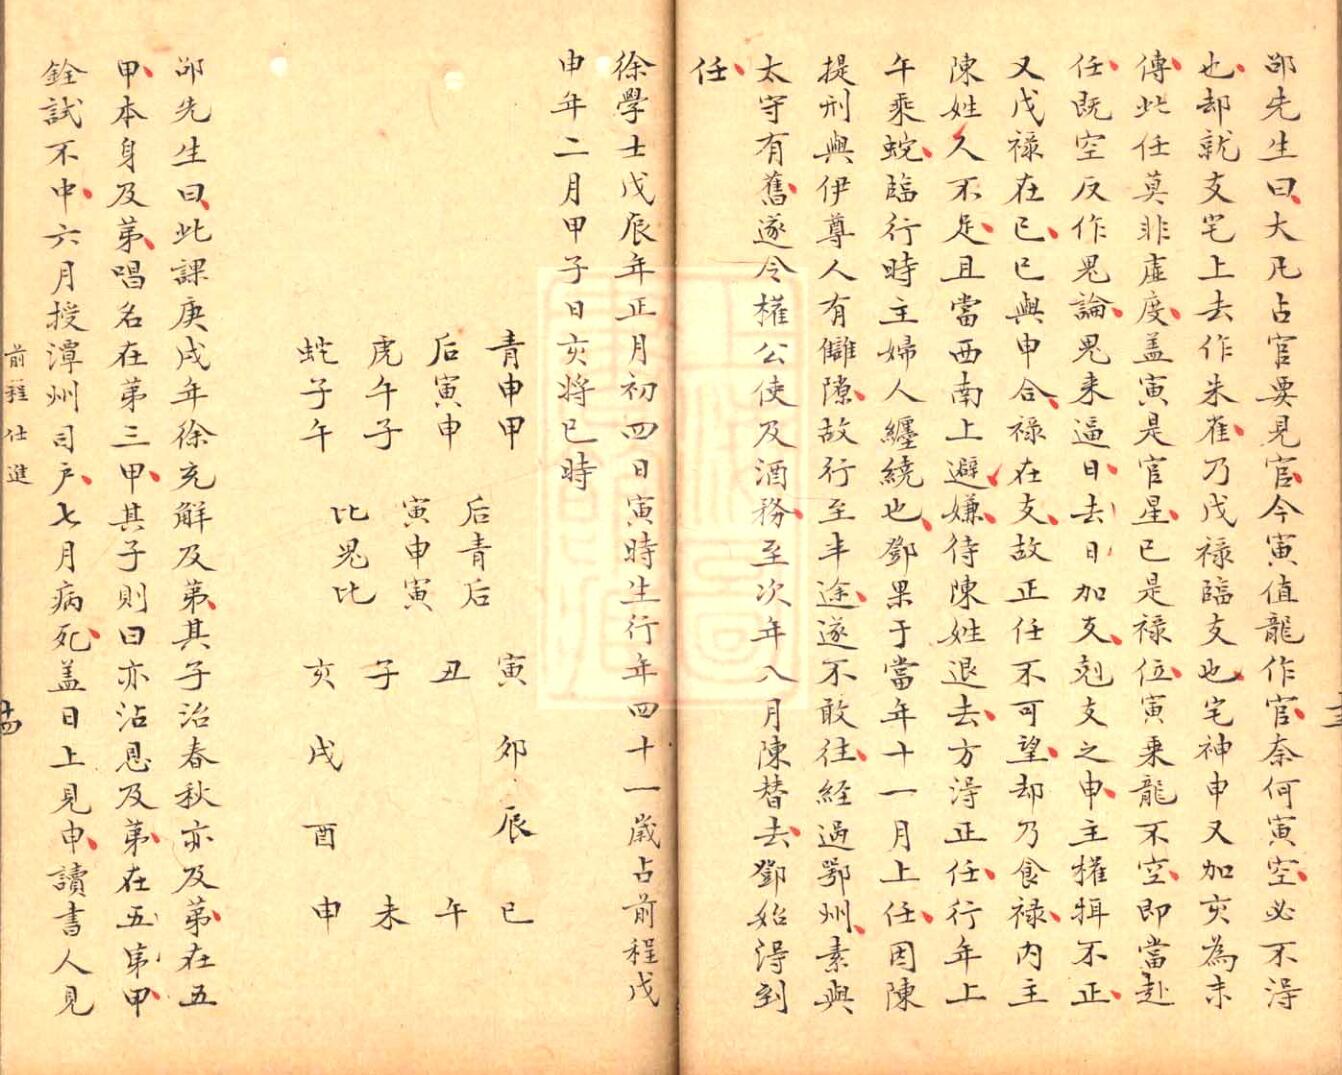 邵先生曰大凡占官要見官今寅值龍作官奈何寅空必不淂
也却就支宅上去作朱雀乃戊祿臨支也宅神申又加亥為未
傳此任莫非虛度盖寅是官星已是祿位寅乘龍不空即當赴
任既空反作鬼論鬼来逼日去日加支剋支之申主權輯不正
又戊祿在巳巳與申合祿在支故正任不可望却乃食祿内主
陳姓人不足且當西南上避嫌待陳姓退去方淂正任行年上
午乘蛇臨行時主婦人纏繞也鄧果于當年十一月上任因陳
提刑與伊尊人有讎隙故行至半途遂不敢往経過鄂州素與
太守有舊遂令權公使及酒務至次年八月陳替去鄧始淂到
任
徐學士戊辰年正月初四日寅時生行年四十一歲占前程戊
申年二月甲子日亥将巳時
青申甲　后青后　寅卯辰巳
后寅申　寅申寅　丑　　午
虎午子　比鬼比　子　　未
蛇子午　　　　　亥戌酉申
邵先生曰此課庚戌年徐充解及第其子治春秋亦及第在五
甲本身及第唱名在第三甲其子則曰亦沾恩及第在五第甲
銓試不中六月授潭州司戶七月病死盖日上見申讀書人見
前程仕進
十四